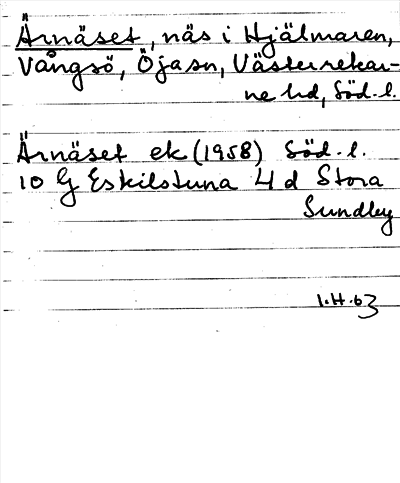 Ärnäset, näs i Hjälmaren,
Vångsö, Öja sn, Västerrekar-
ne hd, Söd. l.
Ärnäset ek (1958) Söd. l.
10 G Eskilstuna 4 d Stora
Sundby
I.H. 63